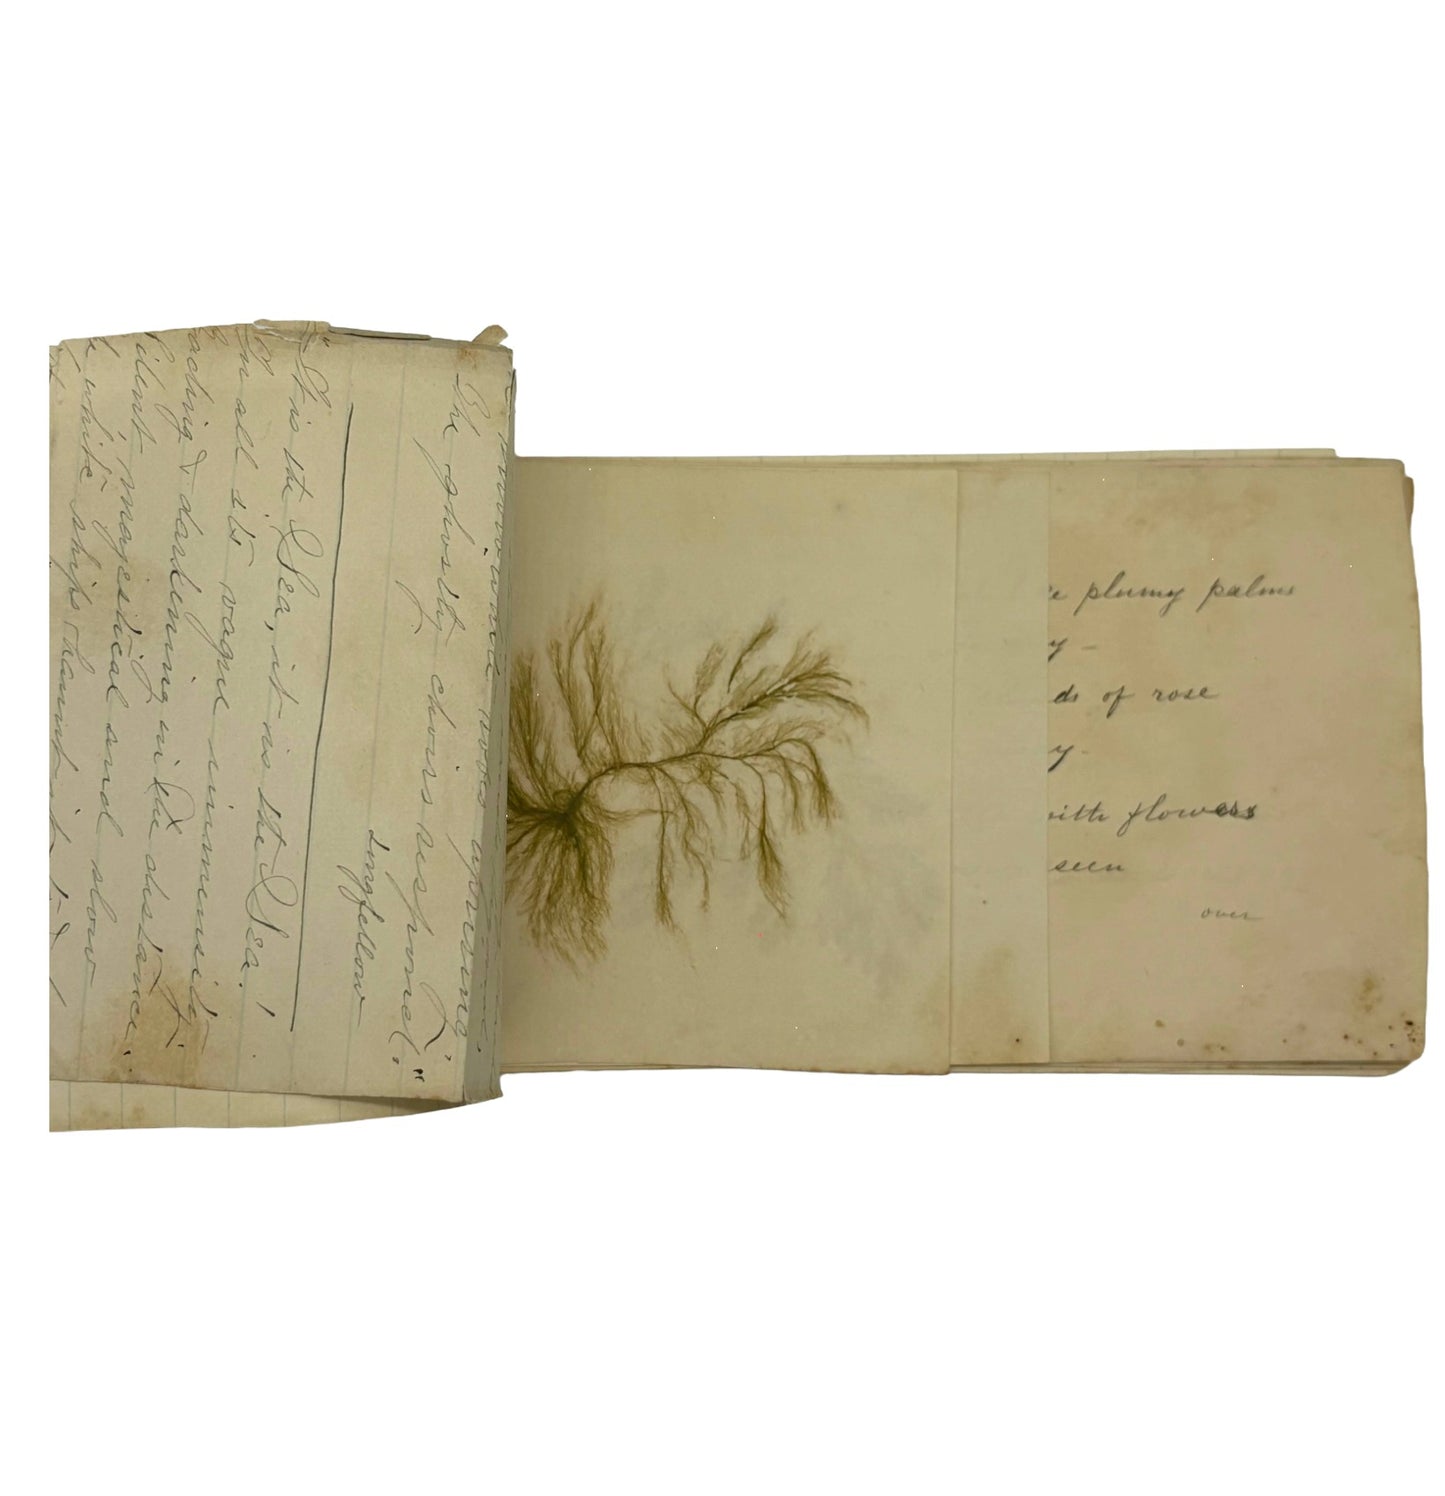 uprising
The ghostly choirs respond."
Longfellow
"It is the Sea, it is the Sea!
In all its vague immensity,
ading & darkening in the distance.
Silent, majestical and slow
white ships haunt it to &
e plumy palms
y -
ds of rose
y -
with flowers
seen
over